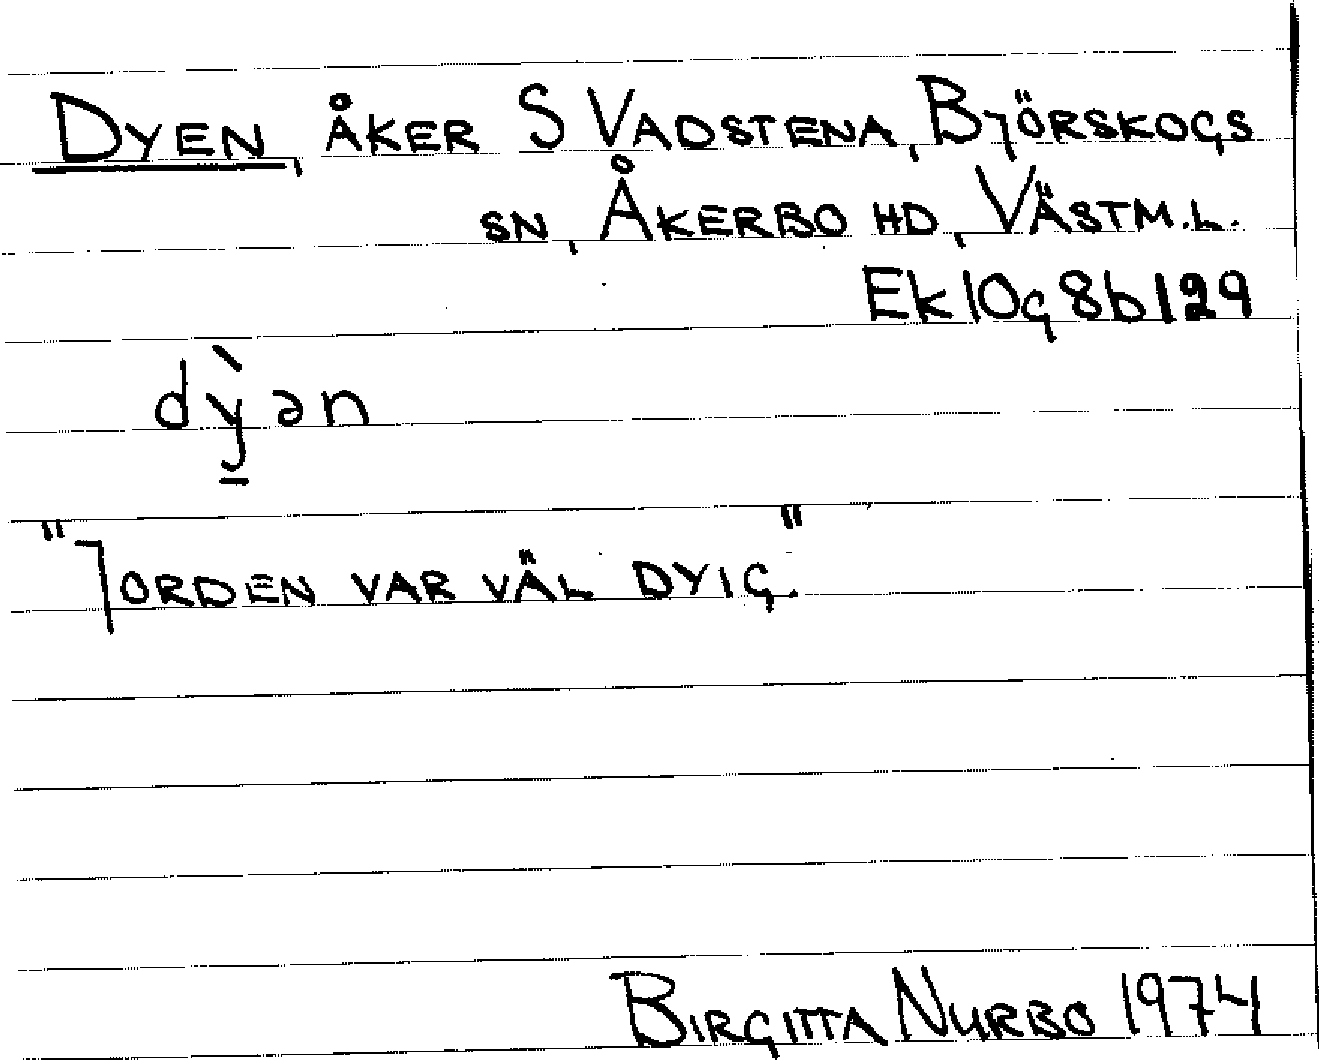 DYEN, ÅKER S VADSTENA, BJÖRSKOGS
SN, ÅKERBO HD, VÄSTM.L.
Ek 10g8b129
dỳ̱ən
"JORDEN VAR VÄL DYIG."
BIRGITTA NURBO 1974